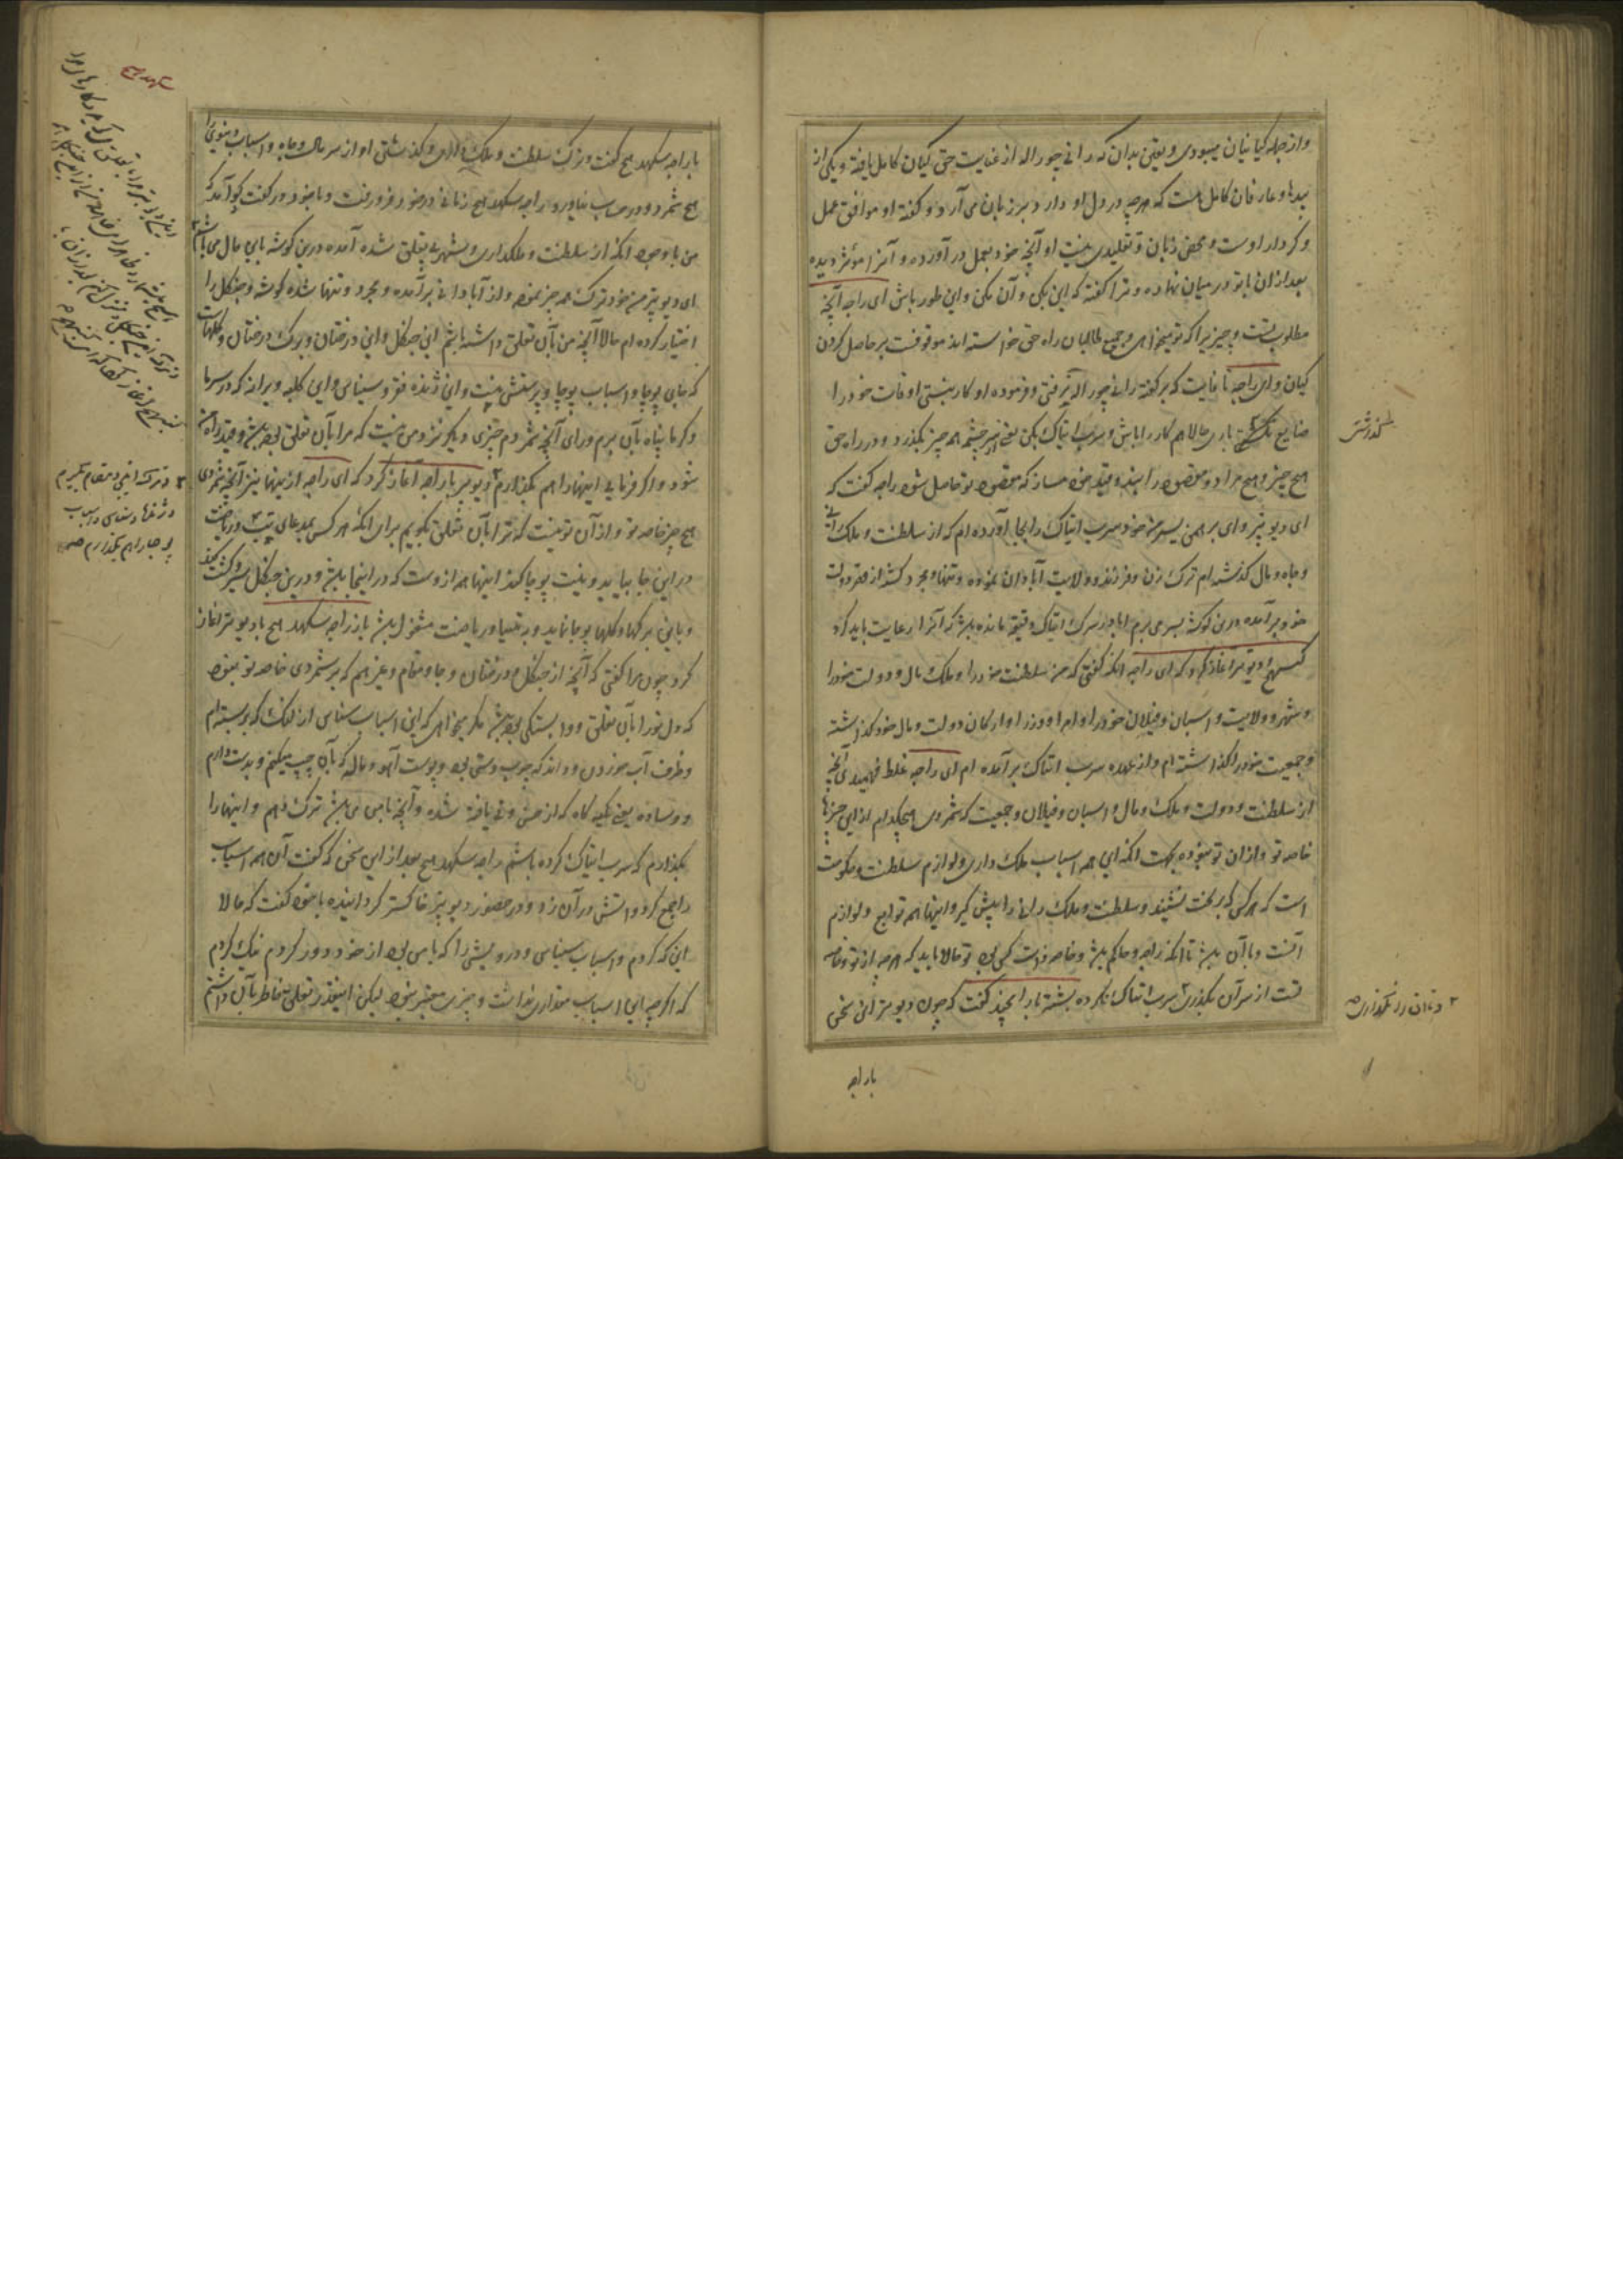 و از جمله کیانیان میبودی و یقین بدان که رانی چوراله از عنایت حق کیان کامل یافته و یکی از
بیدها و عارفان کامل است که هرچه در دل او دارد بر زبان می آرد و گفته او موافق عمل
و کردار اوست و محض زبان و تقلیدی نیست او آنچه خود بعمل در آورده و آنرا مؤثر دیده
بعد از ان با تو در میان نهاده و ترا گفته که این بکن و آن مکن و این طور باش ای راجه آنچه
مطلوب تست و چیزیرا که تو میخواهی و جمیع طالبان راه حق خواسته اند موقوفست بر حاصل کردن
کیان و ای راجه تا غایت که بر گفته رانی چوراله نرفتی و فرموده او کار نبستی اوقات خود را
ضایع باری حالا هم کار را باش و سرب اتیاک بکن یعنی از سر چشم همه چیز بگذر و در راه حق
هیچ چیز و هیچ مراد و مقصود را بند و قید خود مساز که مقصود تو حاصل شود راجه گفت که
ای دیوپتر و ای برهمن پسر من خود سرب اتیاک را بجا آورده ام که از سلطنت و ملک رانی
و جاه و مال گذشته ام ترک زن و فرزند و ولایت آبادان نموده و تنها و مجرد گشته از دولت
خود بر آمده درین گوشه بسر می برم اما در سرب اتیاک دقیقه مانده باشد که آنرا رعایت باید کرد
کنبهج دیوپتر آغاز کرد که ای راجه آنکه گفتی که من سلطنت خود را و ملک و مال و دولت خود را
و شهر و ولایت و اسپان و فیلان خود را و امرا و وزرا و ارکان دولت و مال خود گذاشته
و جمعیت خود را گذاشته ام و از عهده سرب اتیاک بر آمده ام ای راجه غلط فهمیدی آنچه
از سلطنت و دولت و ملک و مال و اسپان و فیلان و جمعیت که شمردی هیچکدام از این چیزها
خاصه تو و از ان تو نبوده جهت آنکه این همه اسباب ملک داری و لوازم سلطنت و حکومت
است که هر کس که بر تخت نشیند و سلطنت و ملک رانی را پیش گیرد اینها همه توابع و لوازم
آنست و با آن باشد تا آنکه راجه و حاکم باشد و خاصه ذات کسی نی تو حالا باید که هرچه از تو و خاصه
تست از سر آن بگذری سرب اتیاک کرده باشی باز رامچند گفت که چون دیوپتر این سخن
با راجه
گذشتن
با راجه سکهدهج گفت و ترک سلطنت و ملک و گذشتن او از سر مال و جاه و اسباب دنیوی را
هیچ نشمرد و در حساب نیاورد راجه سکهدهج زمانی در خود فرو رفت و با خود در گفت گو آمد که
من با وجود آنکه از سلطنت و ملکداری و شهر بی تعلق شده آمده درین گوشه باین حال می باشم
ای دیوپتر من خود ترک همه چیز نموده و از آبادانی بر آمده و مجرد و تنها شده گوشه و جنگل را
اختیار کرده ام حالا آنچه من بآن تعلق داشته باشم این جنگل و این درختان و برگ درختان و گلهاست
که جای پوجا و اسباب پوجا و پرستش نیست و این ژنده فقر و سیناسی و این کلبه ویرانه که در سرما
و گرما پناه بآن برم ورای آنچه شمردم چیزی دیگر نزد من نیست که مرا بآن تعلق بوده باشد و قید راه من
شود و اگر فرمایی اینها را هم بگذارم دیوپتر با راجه آغاز کرد که ای راجه از اینها نیز آنچه شمردی
هیچ چیز خاصه تو و از آن تو نیست که ترا بآن تعلق بگویم برای آنکه هر کس بمدعای تپ و ریاضت
در این جا بیاید و نیت پوجا کند اینها همه از وست که در اینجا باشد و درین جنگل سیر و گشت کند
و باین برگها و گلها پوجا نماید و به تپسیا و ریاضت مشغول باشد باز راجه سکهدهج با دیوپتر آغاز
کرد چون مرا گفتی که آنچه از جنگل و درختان و جا و مقام و غیر هم که بر شمردی خاصه تو نبوده
که دل تو را بآن تعلق و وابستگی بوده باشد مگر میخواهی که این اسباب سناسی از لنگ که بر بسته ام
و ظرف آب خوردن و دانه که چوب دستی و پوست آهو و ماله که بآن جپ میکنم و بدست دارم
و وساده یعنی تکیه گاه که از خس و نی بافته شده و آنچه با من می باشد ترک دهم و اینها را
بگذارم که سرب اتیاک کرده باشم راجه سکهدهج بعد از این سخن که گفت آن همه اسباب
را جمع کرد و آتش در آن زد و در حضور دیوپتر خاکستر گردانیده با خود گفت که حالا
این که کردم و اسباب سیناسی و درویشی را که با من بود از خود دور کردم نیک کردم
که اگرچه این اسباب مقداری نداشت و چیزی معتبر نبود لیکن اینقدر تعلق خاطر بآن داشتم
سکهدهج